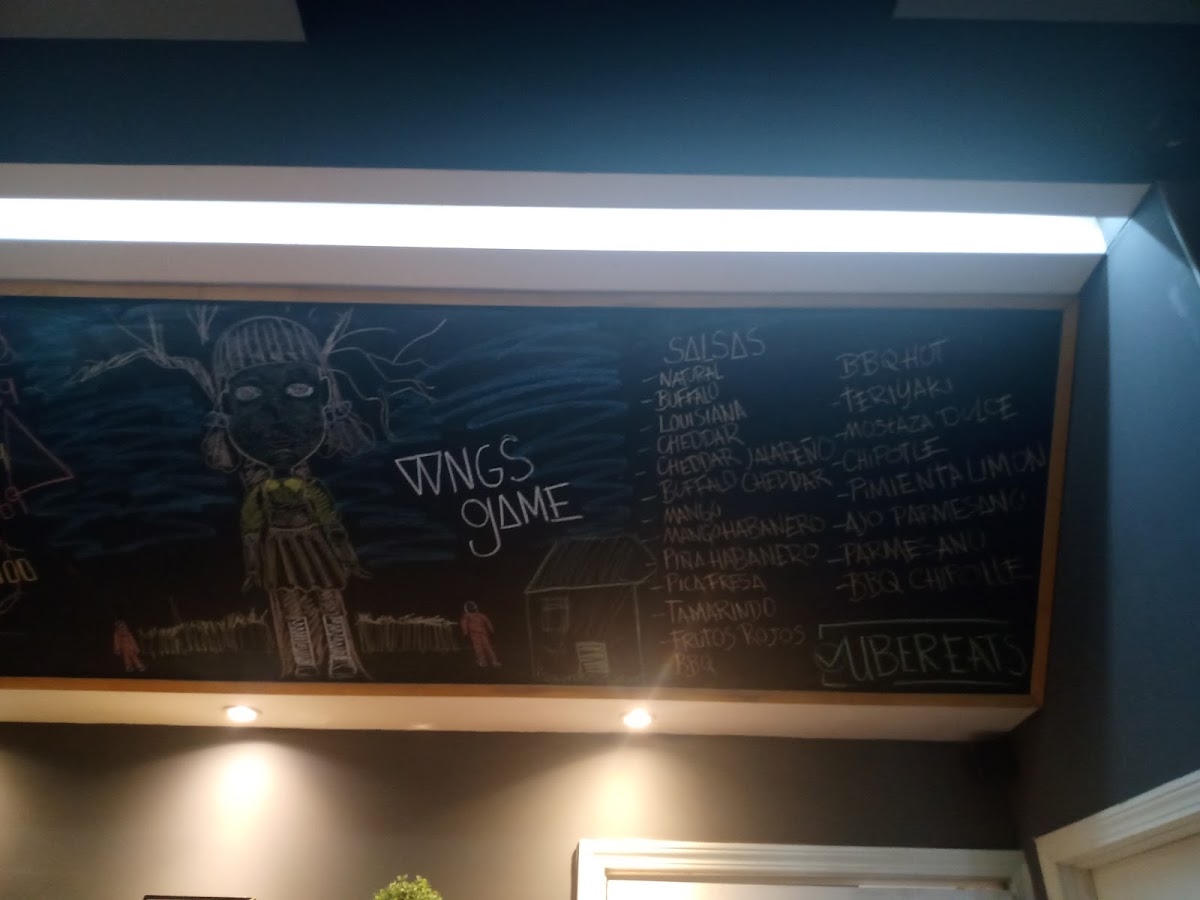 WNGS
gAME
SALSAS
- NATURAL
- BUFFALO
- LOUISIANA
- CHEDDAR
- CHEDDAR JALAPEÑO
- BUFFALO CHEDDAR
- MANGO
- MANGO HABANERO
- PIÑA HABANERO
- PICAFRESA
- TAMARINDO
- FRUTOS ROJOS
- BBQ
BBQ HOT
- TERIYAKI
- MOSTAZA DULCE
- CHIPOTLE
- PIMIENTA LIMON
- AJO PARMESANO
- PARMESANO
- BBQ CHIPOTLE
UBER EATS
00